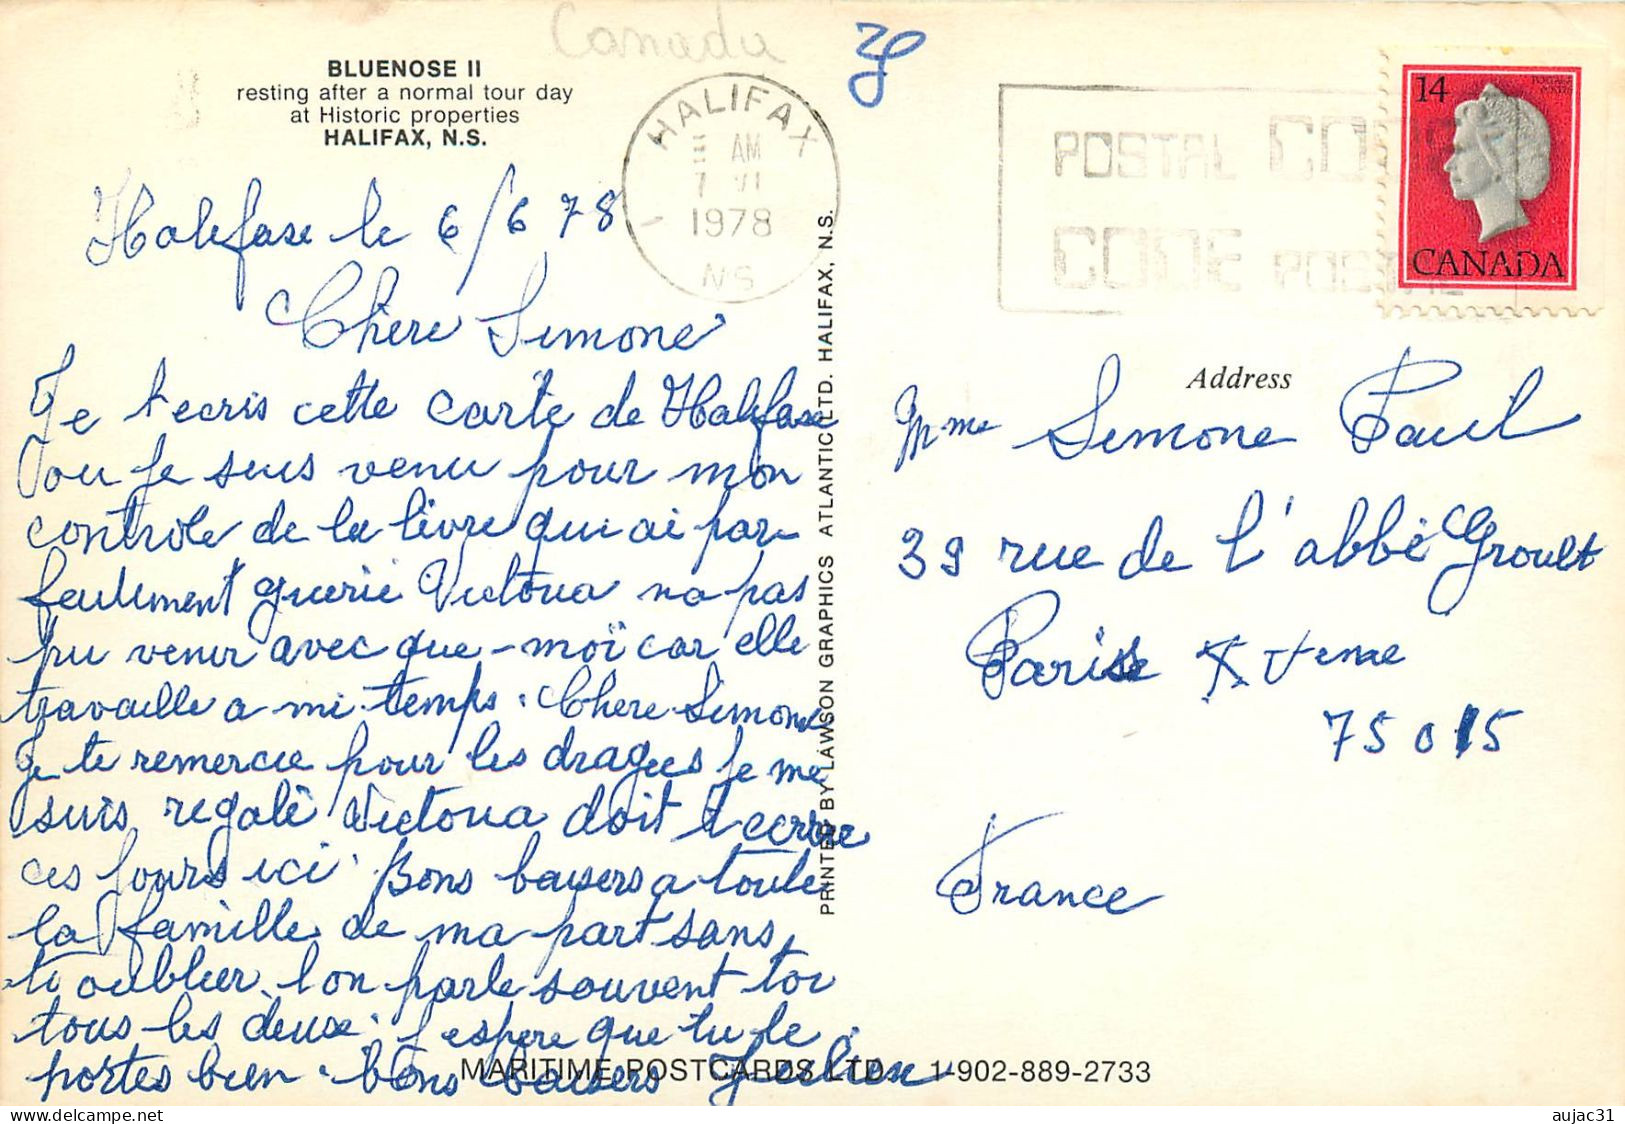 Canada
BLUENOSE II
resting after a normal tour day
at Historic properties
HALIFAX, N.S.
HALIFAX
AM
7 VI
1978
NS
POSTAL CODE
CODE POSTAL
14
POSTAGE
POSTES
CANADA
Halefase le 6/6 78
Chere Simone
Je t ecris cette carte de Halefase
ou je suis venu pour mon
controle de la livre qui ai par-
feulement guerie Victoria na pas
pu venir avec que-moi car elle
travaille a mi temps. Chere Simone
Je te remercie pour les dragees je me
suis regalé Victoria doit t ecrire
ces jours ici. Bons baisers a toute
la famille de ma part sans
ti oublier l on parle souvent toi
tous les deux. J espere que tu le
portes bien. bons baisers
Address
Mme Simone Paul
39 rue de l'abbé Groult
Paris XVeme
75015
France
PRINTED BY LAWSON GRAPHICS ATLANTIC LTD. HALIFAX, N.S.
MARITIME POSTCARDS LTD. 1-902-889-2733
delcampe.net
aujac31